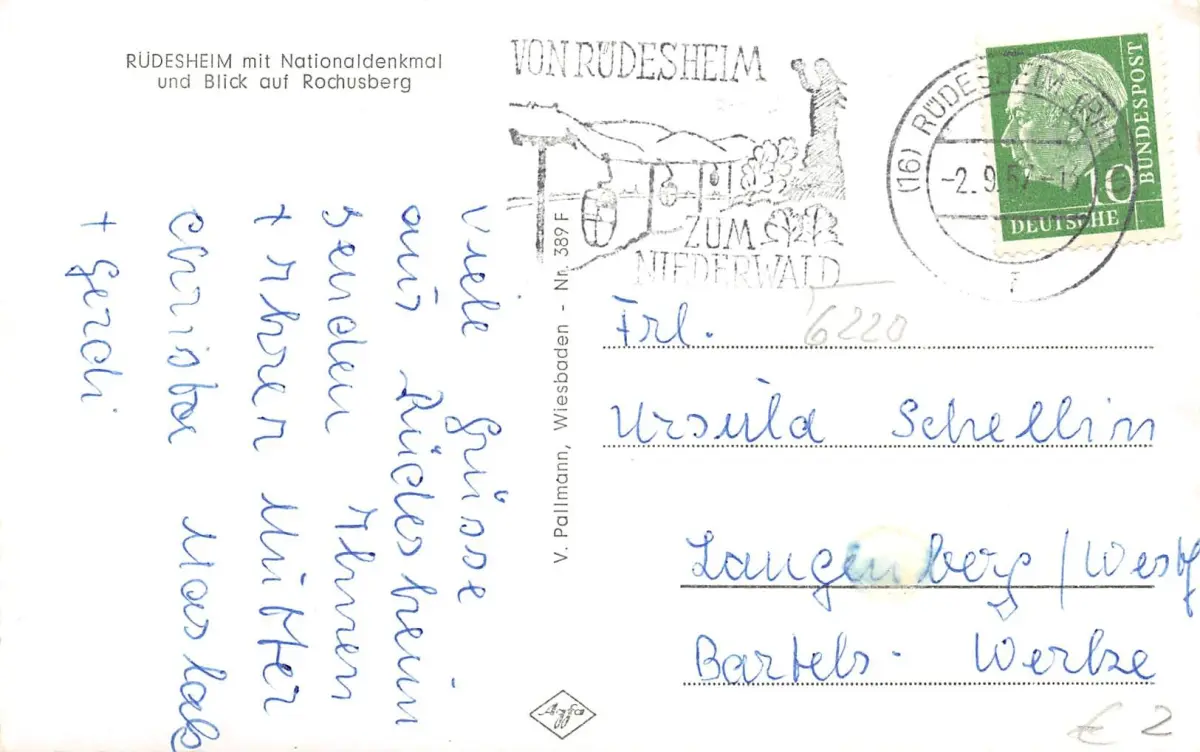 RÜDESHEIM mit Nationaldenkmal
und Blick auf Rochusberg
VON RÜDESHEIM
ZUM
NIEDERWALD
(16) RÜDESHEIM (RHEIN)
-2.9.57
BUNDESPOST
10
DEUTSCHE
Viele Grüsse
aus Rüdesheim
senden Ihnen
+ Ihrer Mutter
Christa Maslak
+ Gerdi
V. Pallmann, Wiesbaden - Nr. 389 F
6220
Frl.
Ursula Schellin
Langenberg/Westf
Bartels-Werke
Agfa
€ 2